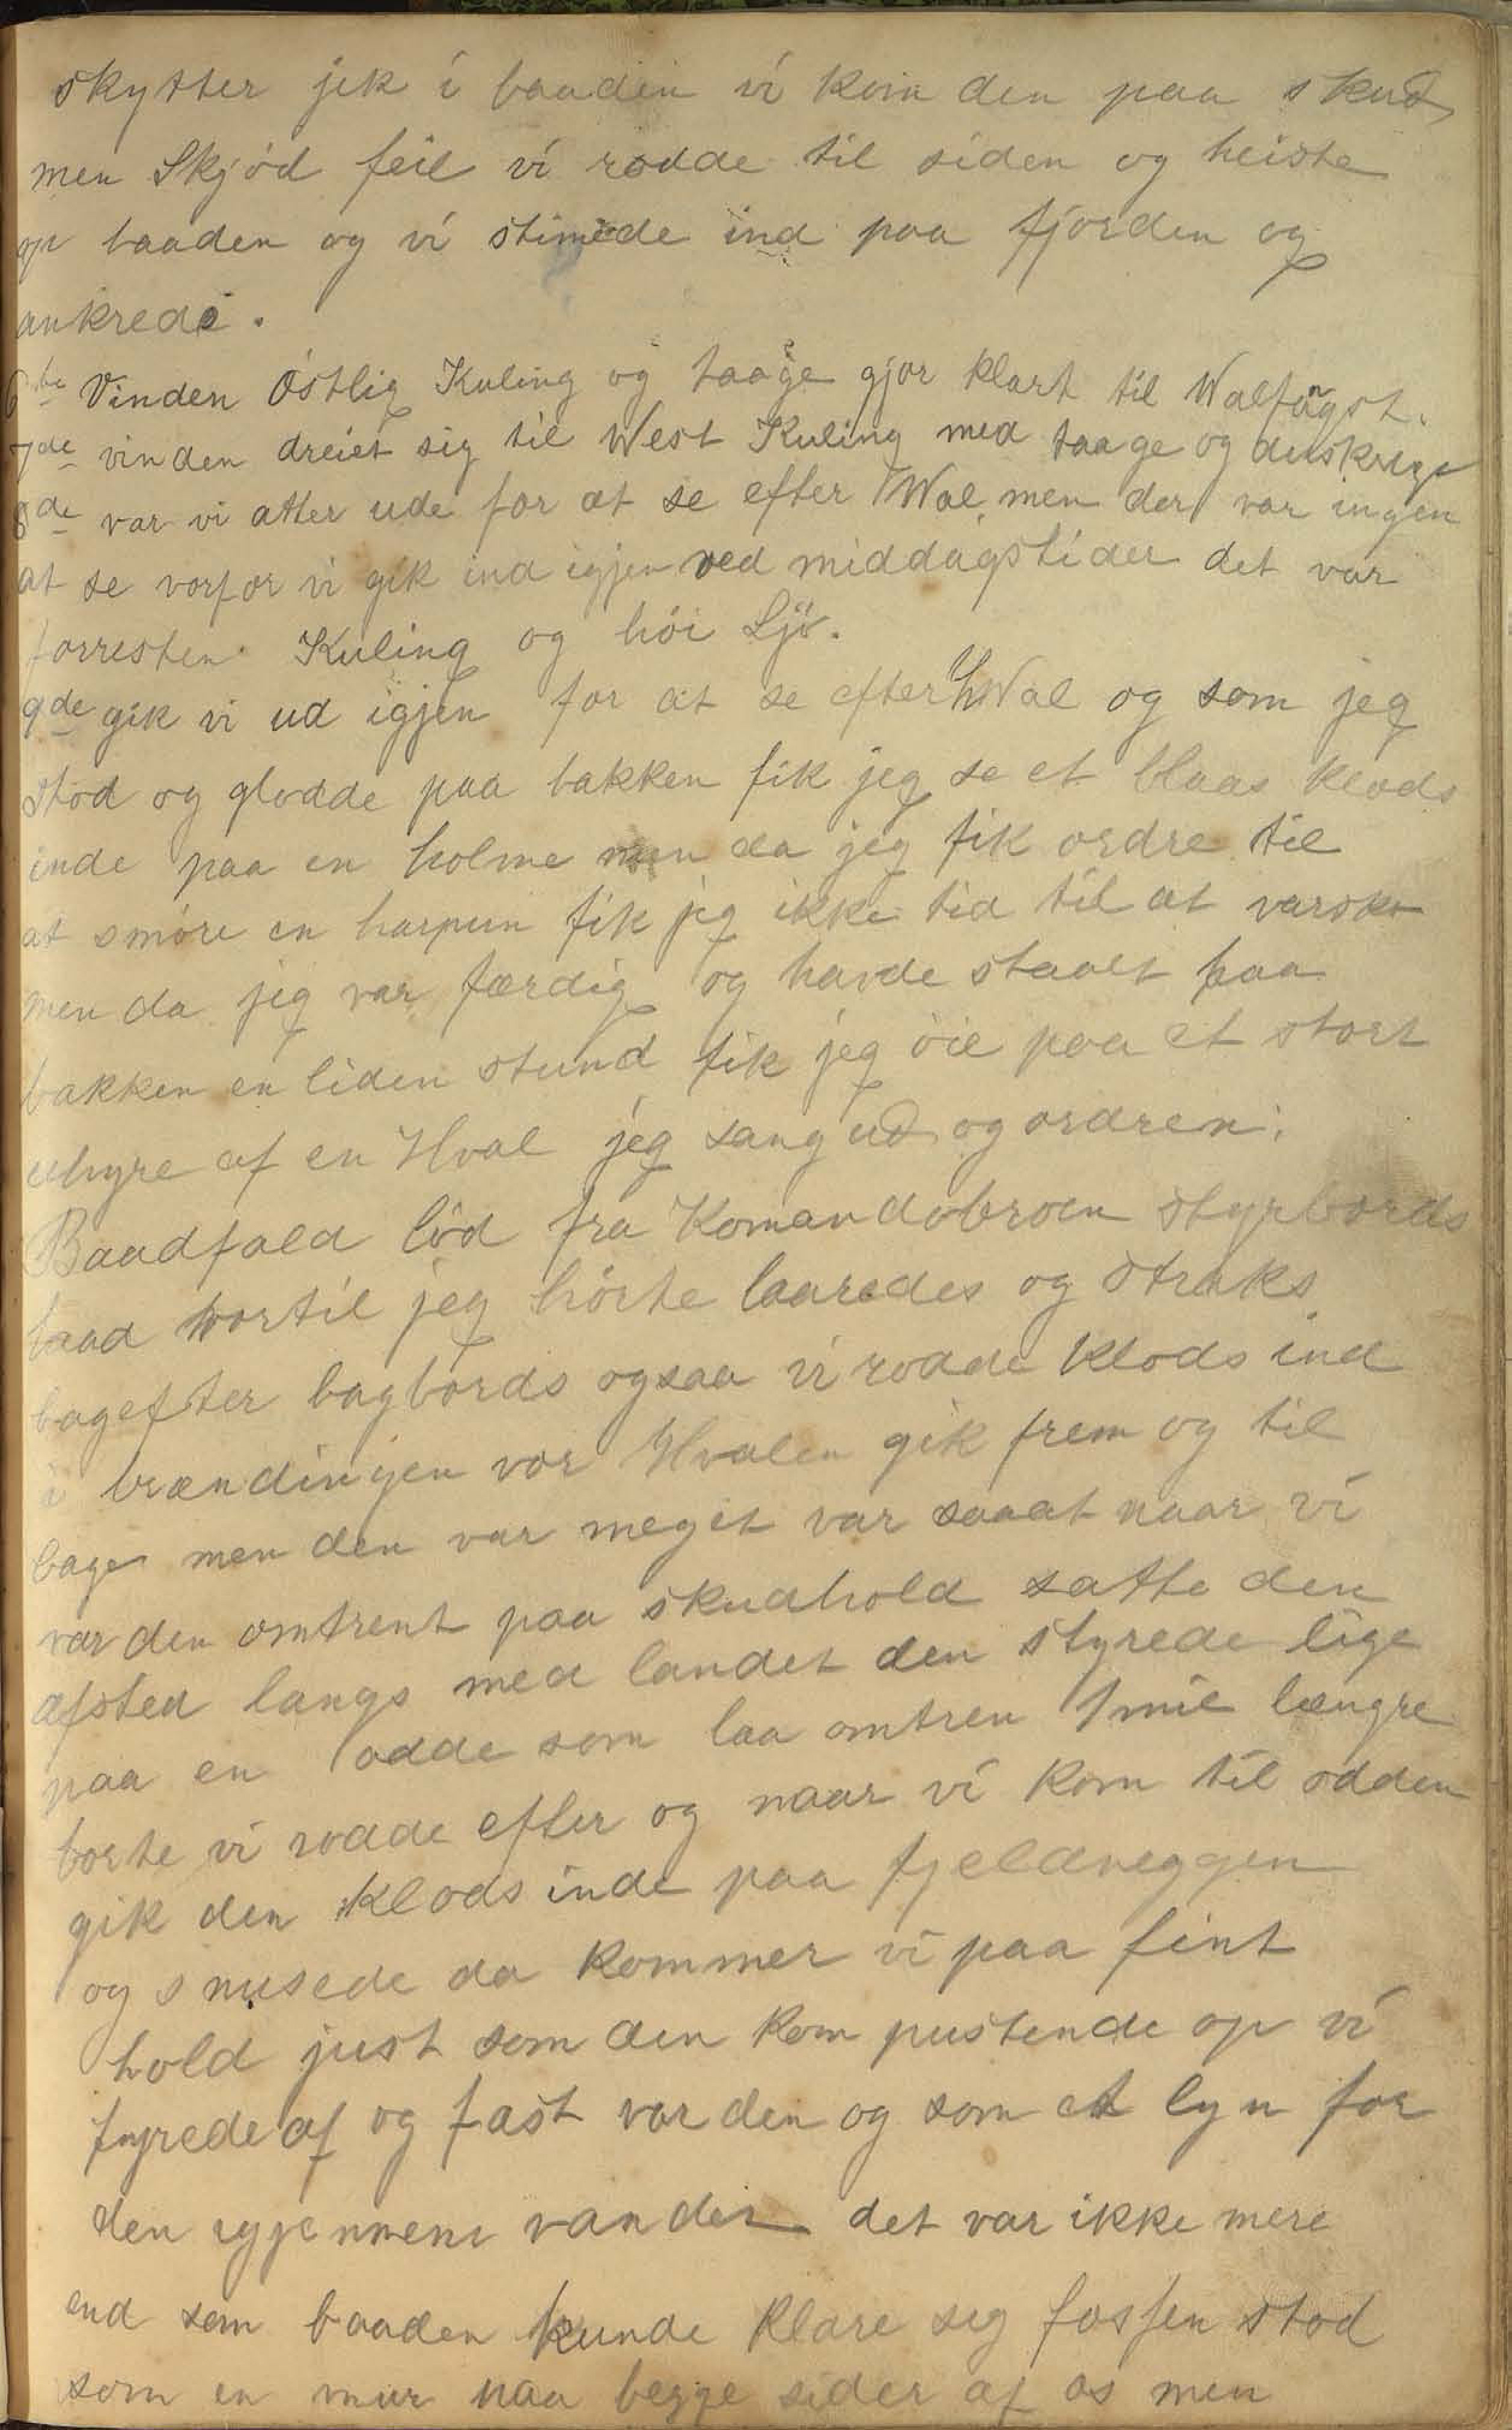 skytter jek i baaden vi kom den paa skud
men Skjød feil vi rodde til siden og heiste
op baaden og vi stimede ind paa fjorden og
ankrede.
6te Vinden Östlig Kuling og taage gjor klart til Walfangst.
7de vinden dreiet sig til West Kuling med taage og
8de var vi atter ude for at se efter Wal men der var ingen
at se vorfor vi gik ind igjen ved middagstider det var
forresten Kuling og höi Sjö.
9de gik vi ud igjen for at se efter hWal og som jeg
stod og glodde paa bakken fik jeg se et blaas klods
inde paa en holme men da jeg fik ordre til
at smöre en harpun fik jeg ikke tid til at varsko
men da jeg var færdig og havde staaet paa
bakken en liden stund fik jeg öie paa et stort
uhyre af en Hval jeg sang ud og ordren:
Baadfald löd fra Komandobroen styrbords
baad hvortil jeg hörte laaredes og straks
bagefter bagbords ogsaa vi rodde klods ind
i brændingen vor Hvalen gik frem og til
bage men den var meget var saaat naar vi
var den omtrent paa skudhold satte den
afsted langs med landet den styrede lige
paa en odde som laa omtren 1 mil længre
borte vi rodde efter og naar vi kom til odden
gik den klods inde paa fjeldveggen
og snusede da kommer vi paa fint
hold just som den kom pustende op vi
fyrede af og fast var den og som et lyn for
den igjennem vandet det var ikke mere
end som baaden kunde klare sig fossen stod
som en mur paa begge sider af os men